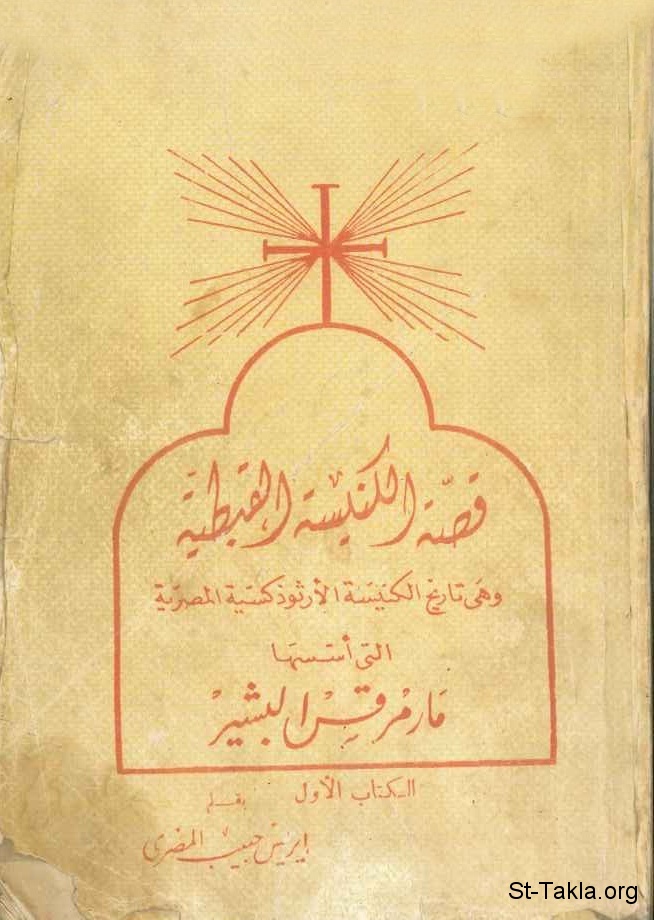 قصّة الكنيسة القبطية
وهَى تاريخ الكنيسَة الأرثوذكسية المصريّة
التى أسّسهَا
مَارمرْقسْ البشيرْ
الكتاب الأول
بقلم
إيريسْ حبيبْ المصْرى
St-Takla.org